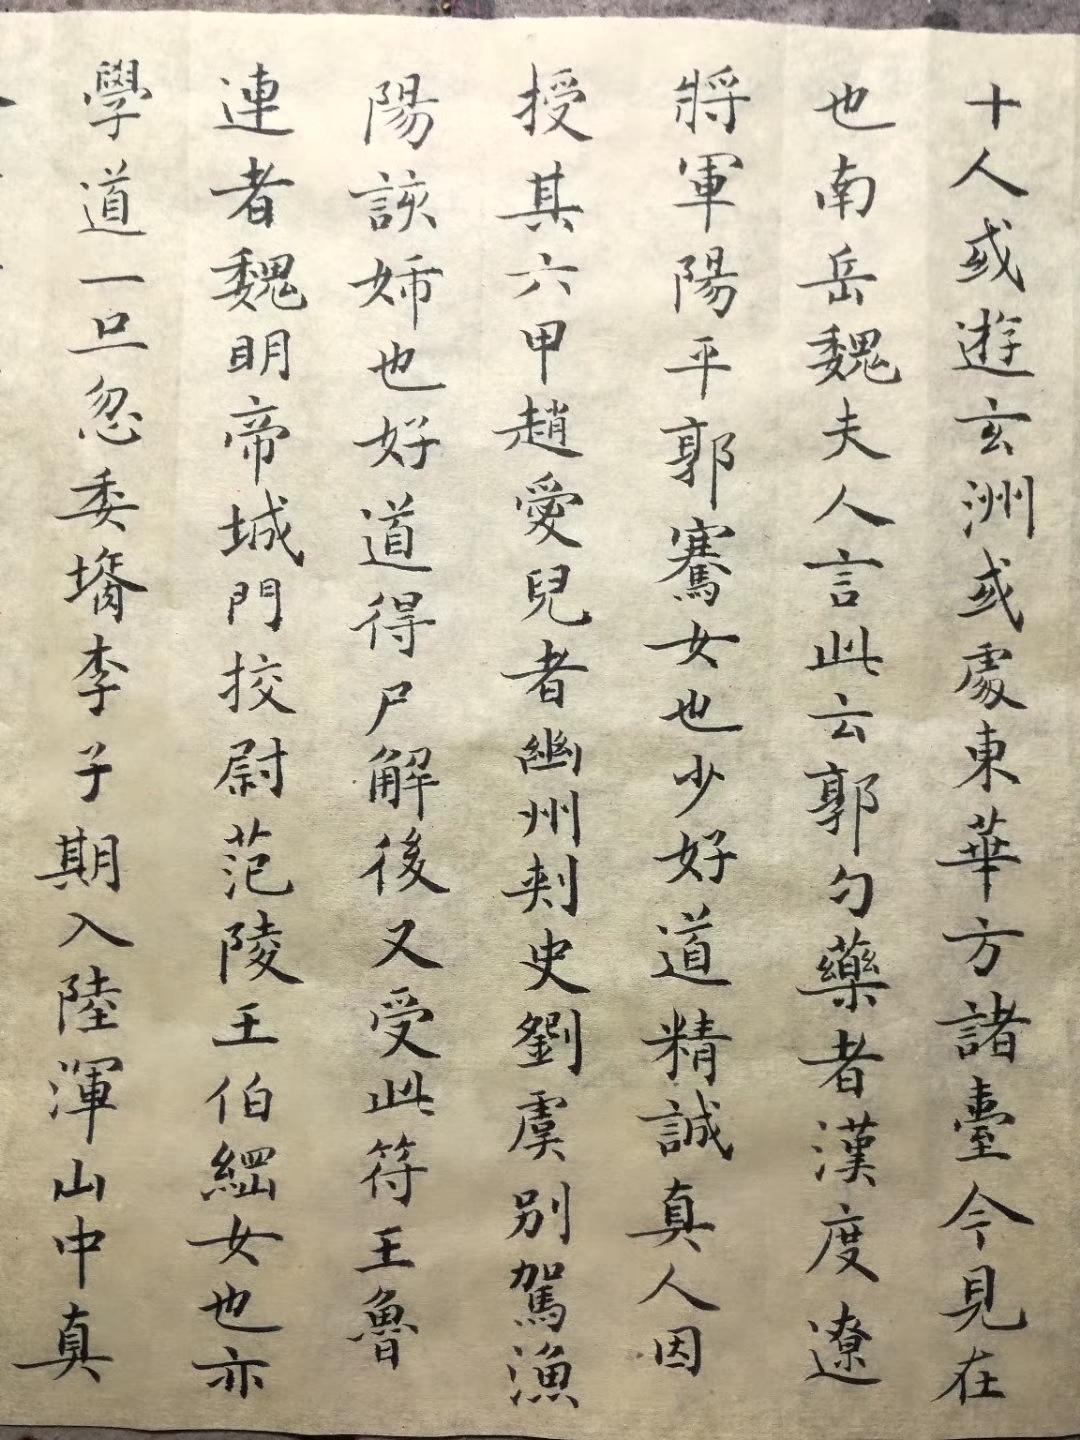 十人或遊玄洲或處東華方諸臺今見在
也南岳魏夫人言此云郭勺藥者漢度遼
將軍陽平郭騫女也少好道精誠真人因
授其六甲趙愛兒者幽州刾史劉虞別駕漁
陽該姉也好道得尸解後又受此符王魯
連者魏明帝城門挍尉范陵王伯綱女也亦
學道一旦忽委壻李子期入陸渾山中真